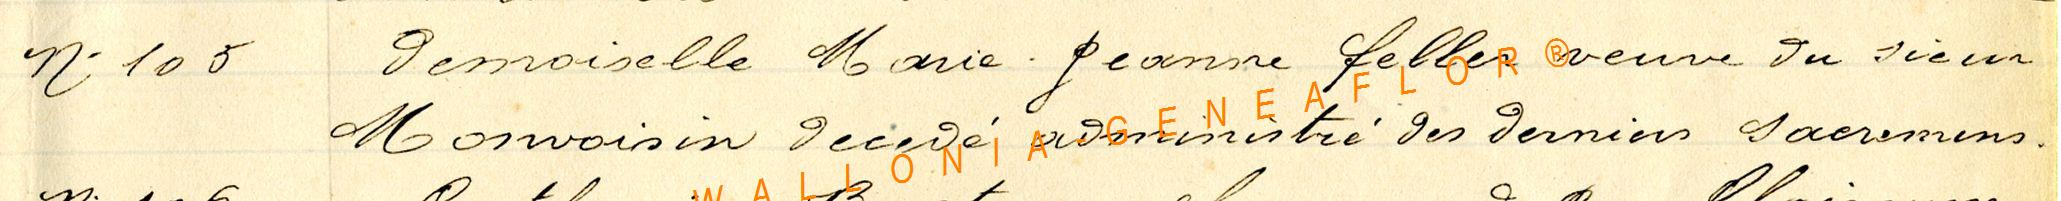 N° 105 demoiselle Marie-Jeanne feller veuve du sieur
Monvoisin decedé administré des derniers Sacremens.
WALLONIA-GENEAFLOR®